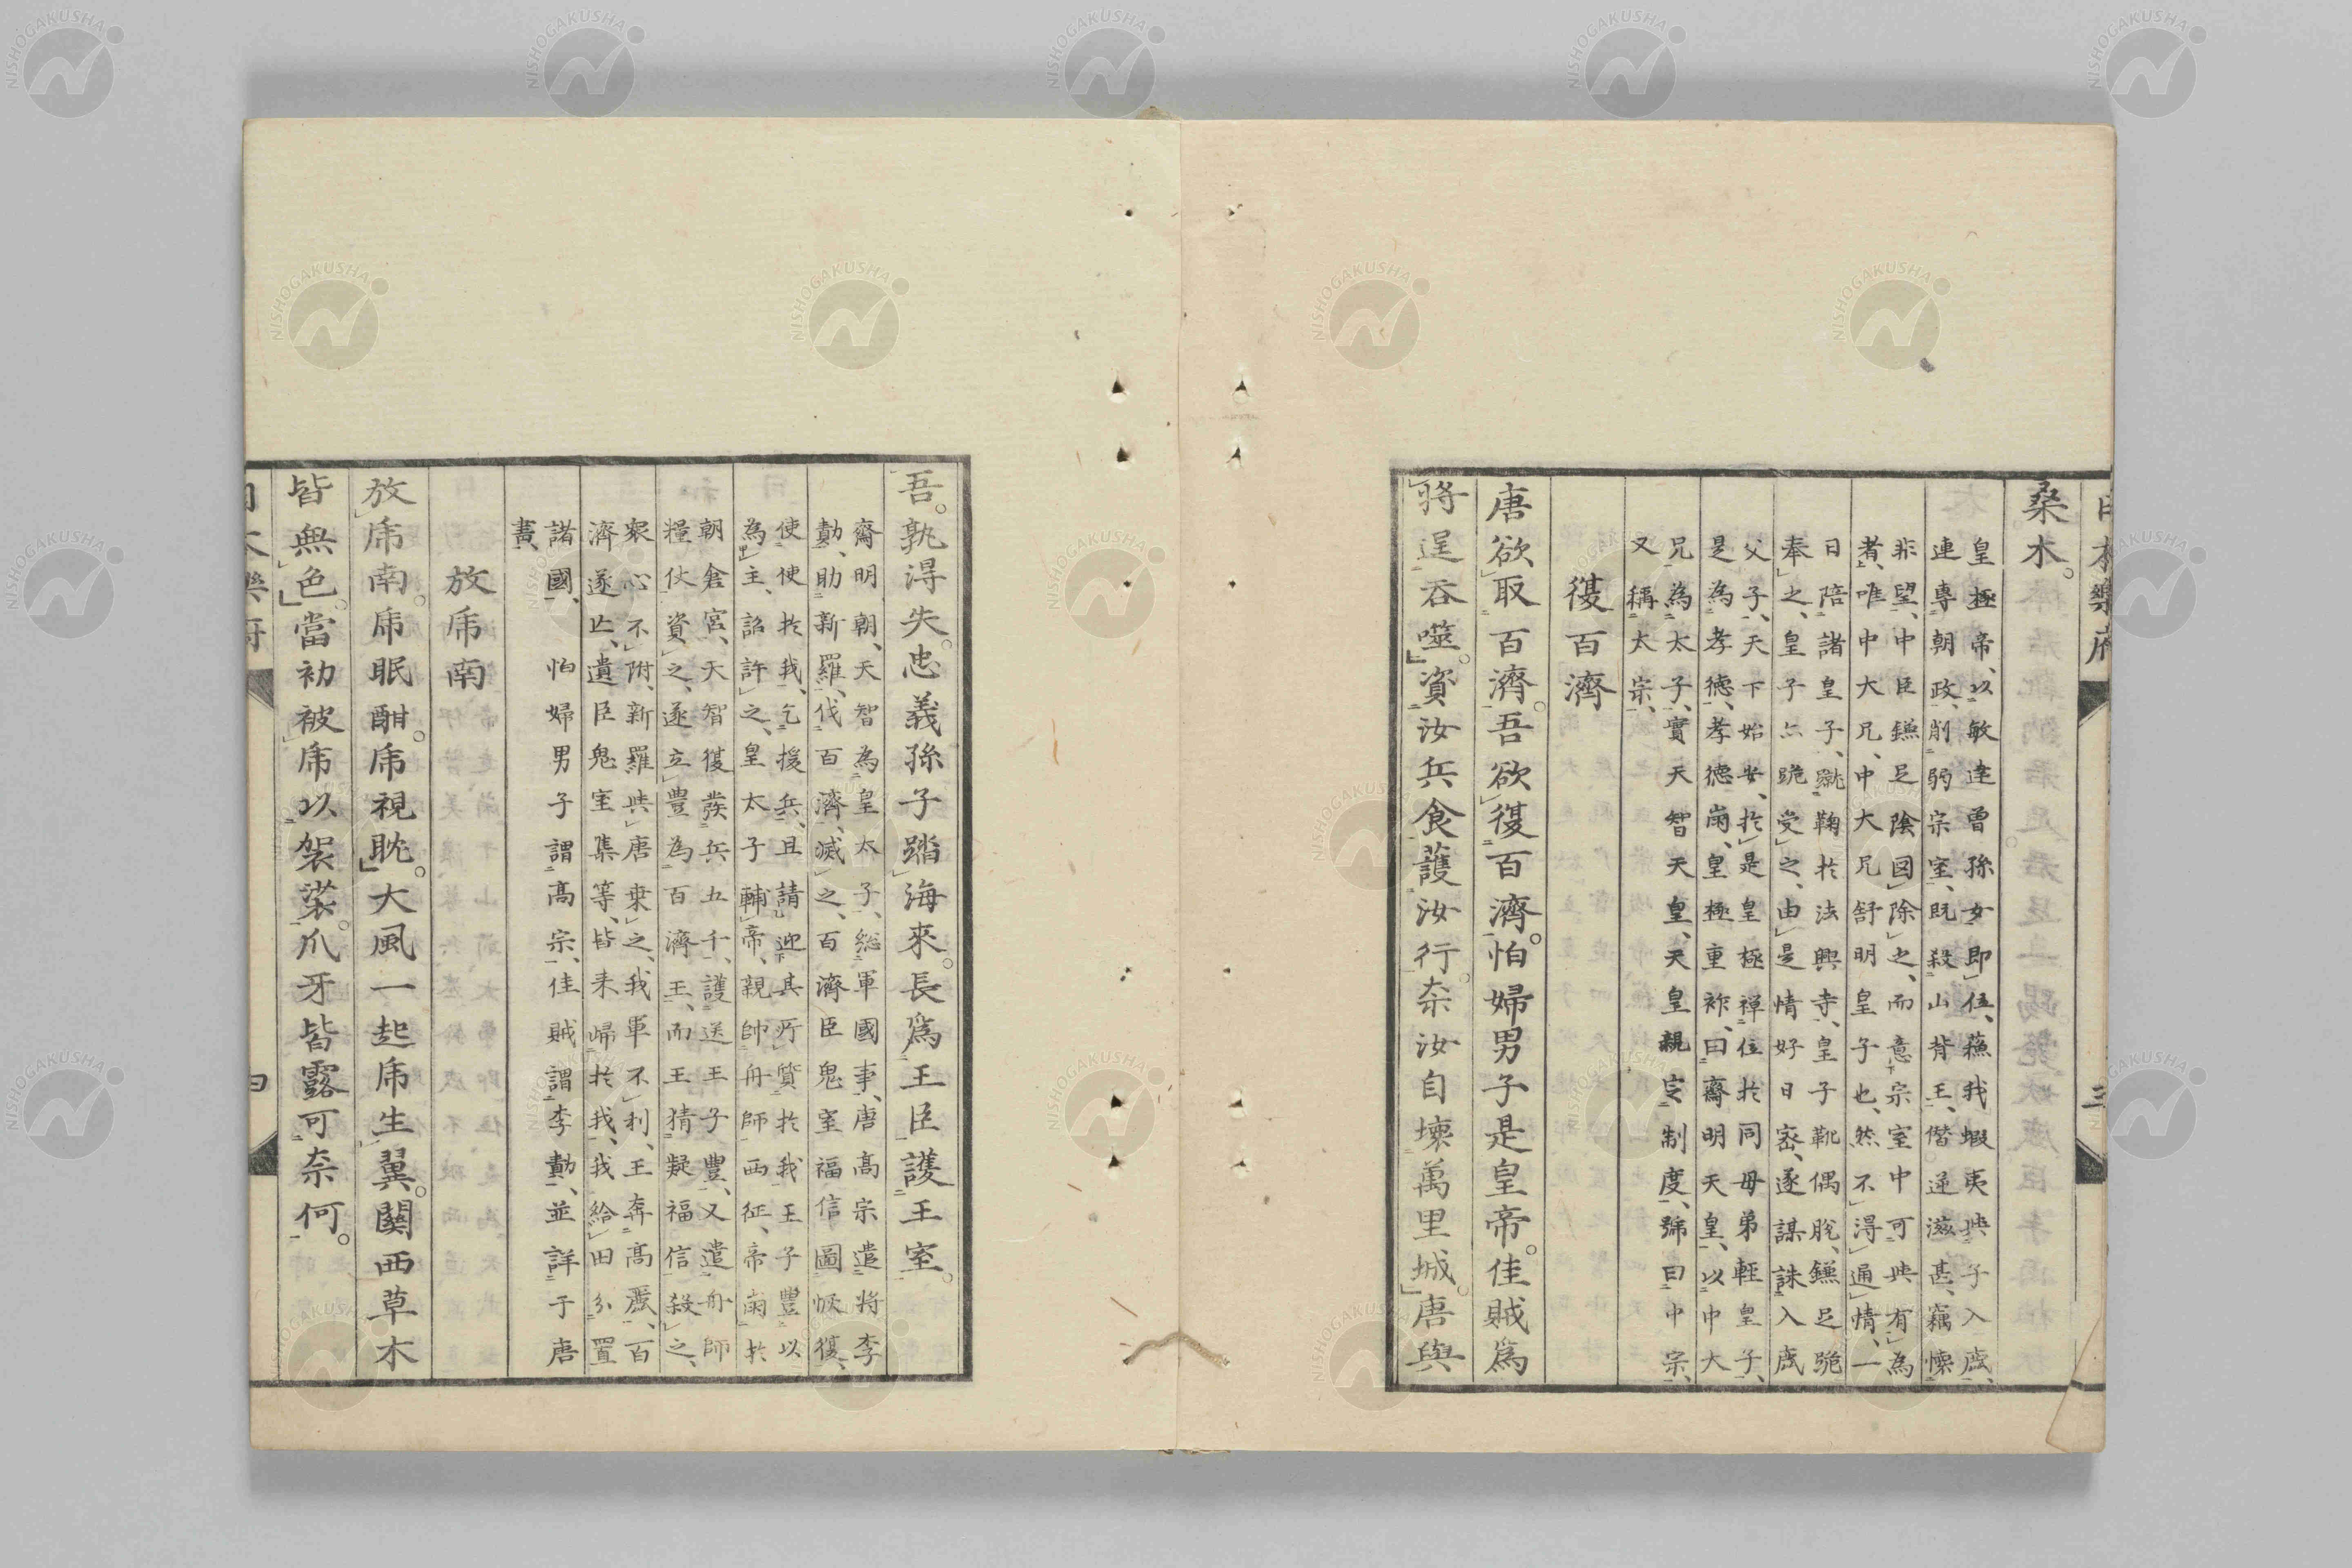 日本樂府
三
桑木。
皇極帝、以敏達曾孫女即位、蘇我蝦夷與子入鹿、
連專朝政、削弱宗室、既殺山背王、僭逆滋甚、竊懷
非望、中臣鎌足陰圖除之、而意宗室中可與有為
者、唯中大兄、中大兄舒明皇子也、然不得通情、一
日陪諸皇子、蹴鞠於法興寺、皇子靴偶脫、鎌足跪
奉之、皇子亦跪受之、由是情好日密、遂謀誅入鹿
父子、天下始安、於是皇極禪位於同母弟輕皇子、
是為孝德、孝德崩、皇極重祚、曰齋明天皇、以中大
兄為太子、實天智天皇、天皇親定制度、號曰中宗、
又稱太宗、
復百濟
唐欲取百濟。吾欲復百濟。怕婦男子是皇帝。佳賊爲
將逞吞噬。資汝兵食護汝行。奈汝自壞萬里城。唐與
吾。孰得失。忠義孫子踏海來。長爲王臣護王室。
齋明朝、天智為皇太子、總軍國事、唐高宗遣將李
勣、助新羅、伐百濟、滅之、百濟臣鬼室福信圖恢復、
使使於我、乞援兵、且請迎其所質於我王子豐以
為主、詔許之、皇太子輔帝、親帥舟師西征、帝崩於
朝倉宮、天智復發兵五千、護送王子豐、又遣舟師
糧仗資之、遂立豐為百濟王、而王猜疑福信殺之、
衆心不附、新羅與唐乗之、我軍不利、王奔高麗、百
濟遂亡、遺臣鬼室集等、皆来歸於我、我給田分置
諸國、　怕婦男子謂高宗、佳賊謂李勣、並詳于唐
書、
放虎南
放虎南。虎眠酣。虎視眈。大風一起虎生翼。關西草木
皆無色。當初被虎以袈裟。爪牙皆露可奈何。
日本樂府
四